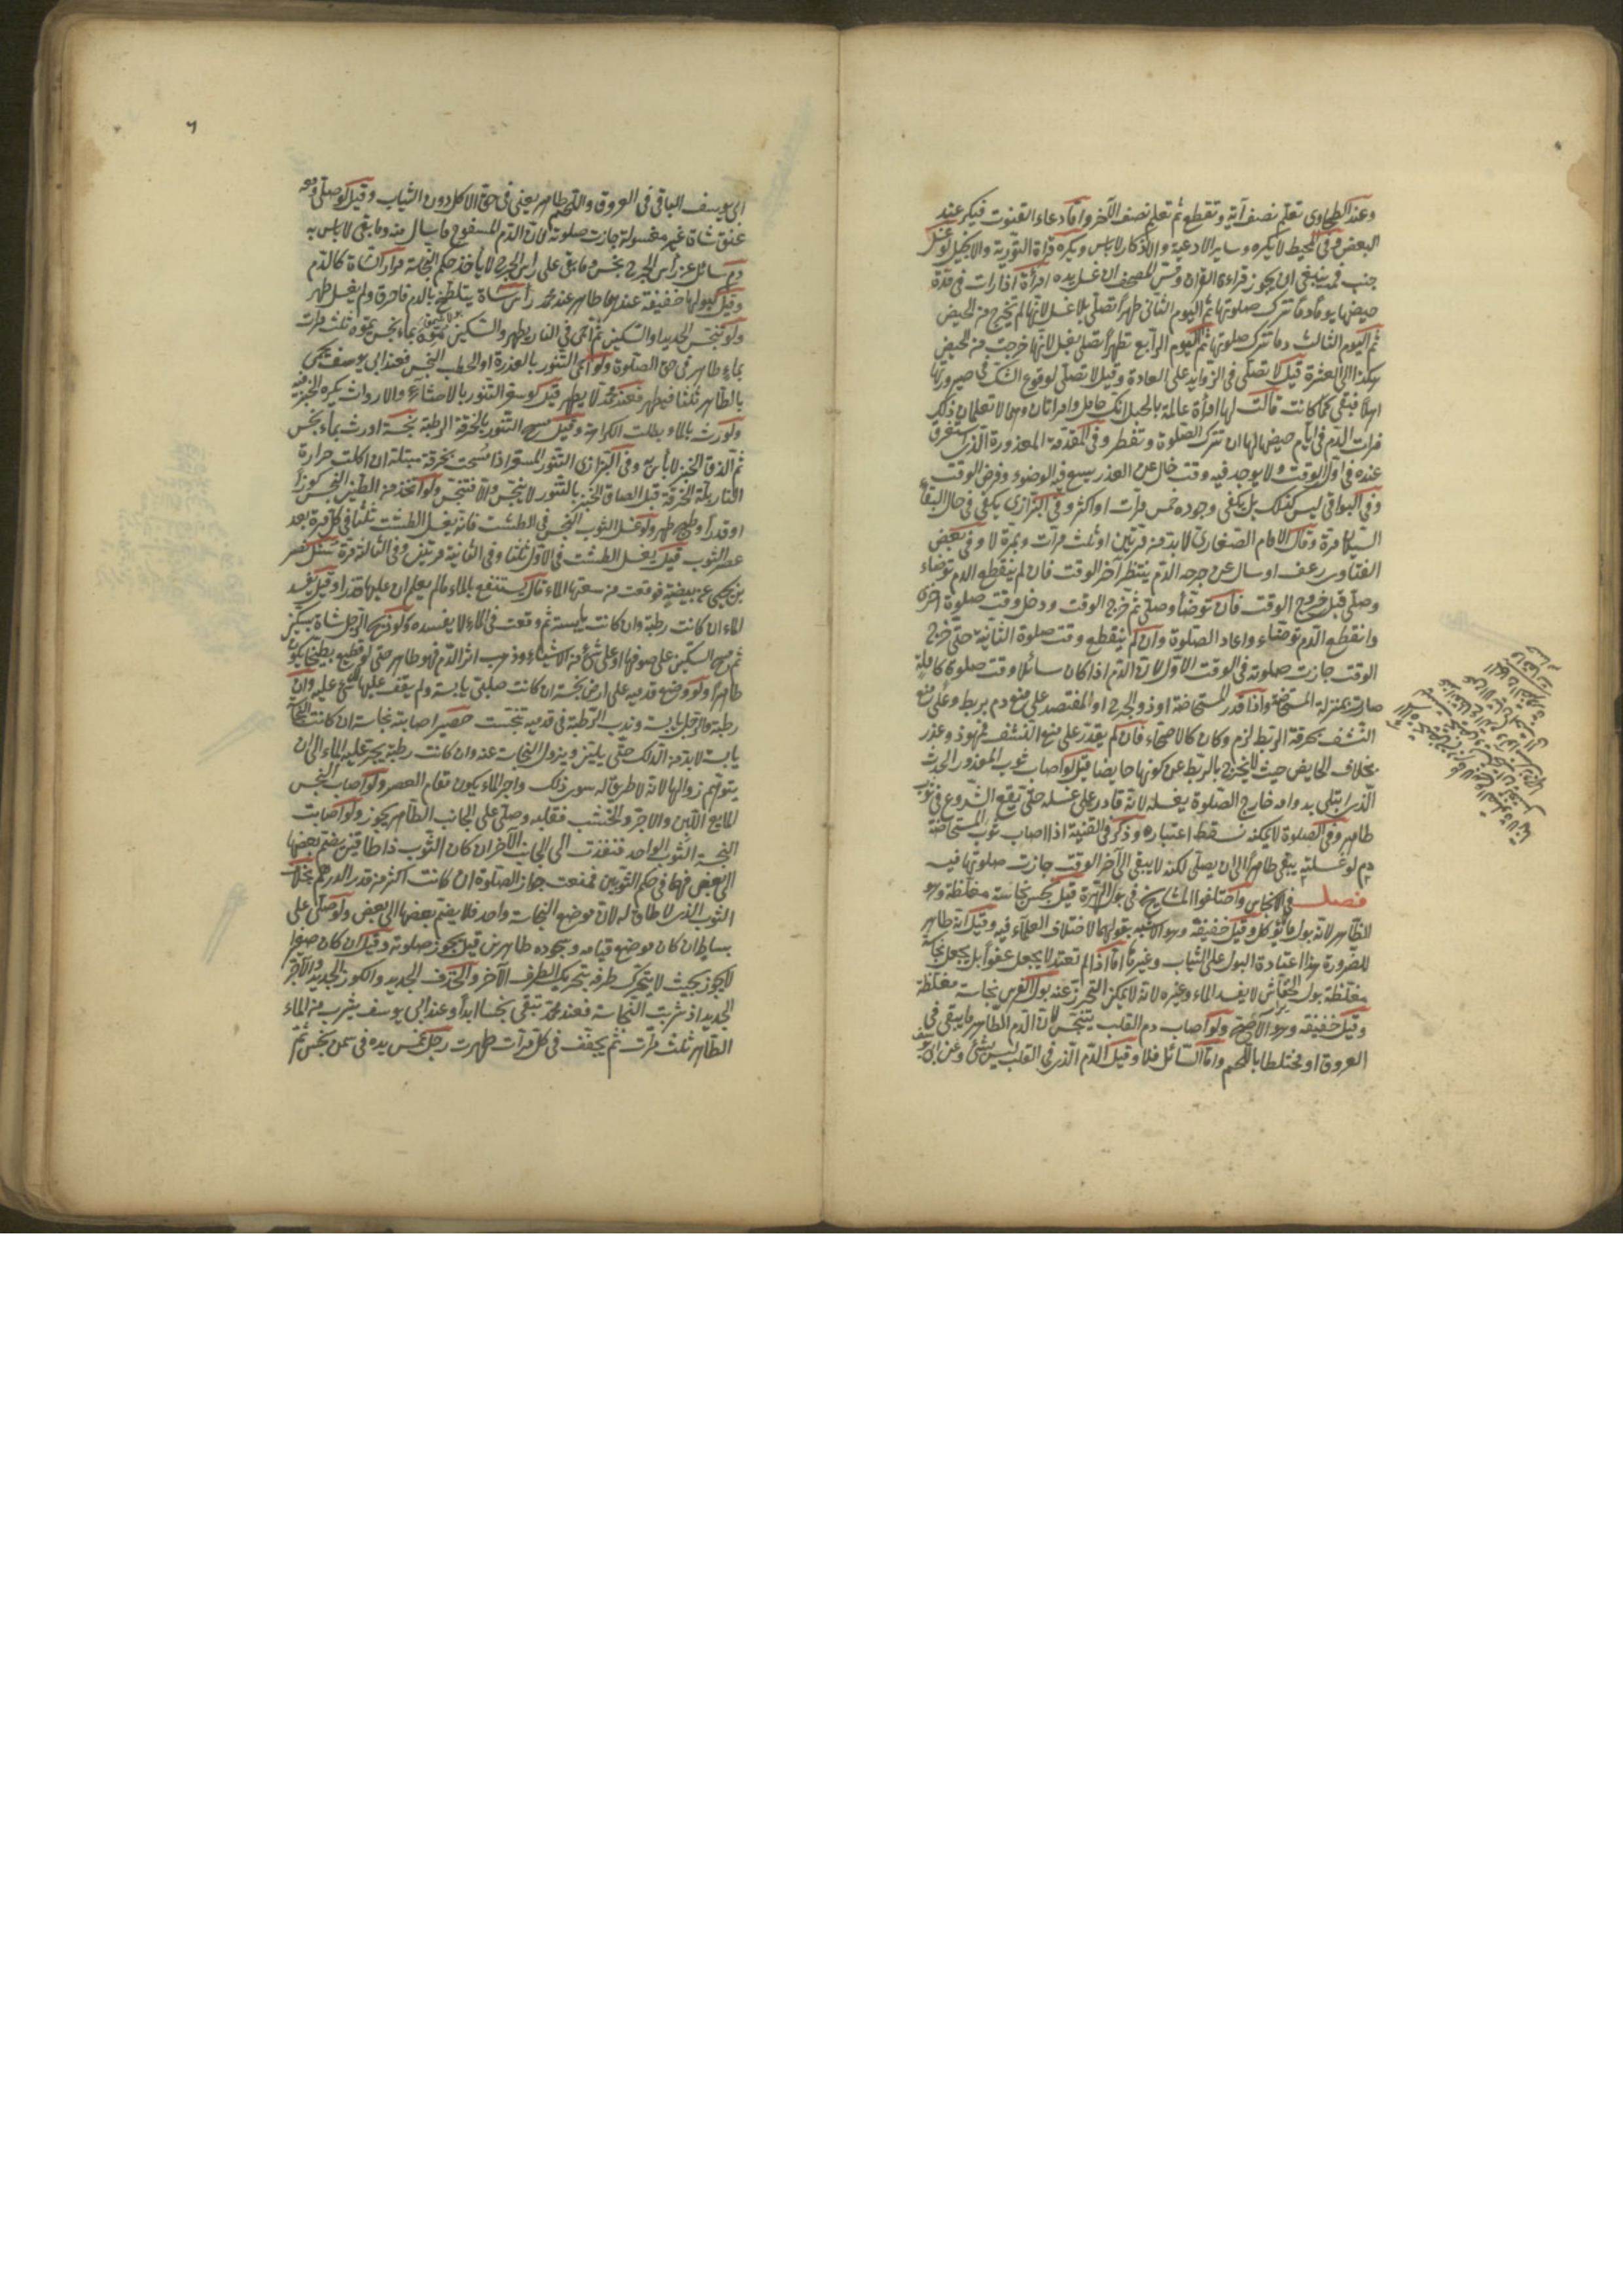 وعند الطحاوى تعلم نصف آية وتقطع ثم تعلم نصف الآخر واما دعاء القنوت فيكره عند
البعض وفى المحيط لا يكره وساير الادعية والاذكار لا بأس ويكره قراة التورية والانجيل لو غسل
جنب فمه ينبغى ان يجوز قراءة القران ومس المصحف ان غسل يده امرأة اذا رات فى مدة
حيضها يوما دما تترك صلوتها ثم اليوم الثانى طهرا تصلى بلا غسل لانها لم تخرج من الحيض
ثم اليوم الثالث دما تترك صلوتها ثم اليوم الرابع تطهرا تصلى بغسل لانها خرجت من الحيض
هكذا الى العشرة قيل لا تصلى فى الزوايد على العادة وقيل لا تصلى لوقوع الشك فى صيرورتها
اهلا فبقى كما كانت قالت لها امرأة عالمة بالحبل انك حامل وامراتان وهما لا تعلمان ذلك
فرات الدم فى ايام حيضها لها ان تترك الصلوة وتفطر وفى المقدمة المعذورة الذى يستغرق
عذره فى اول الوقت ولا يوجد فيه وقت خال عن العذر يسع فيه الوضوء وفرض الوقت
وفى البواقى ليس كذلك بل يكفى وجوده خمس مرات او اكثر وفى البزازى يكفى فى حال البقاء
السيلان مرة وقال الامام الصفارى لا بد من مرتين او ثلث مرات وبمرة لا وفى بعض
الفتاوى رعف او سال عن جرحه الدم ينتظر آخر الوقت فان لم ينقطع الدم توضاء
وصلى قبل خروج الوقت فان توضأ وصلى ثم خرج الوقت ودخل وقت صلوة اخرى
وانقطع الدم توضاء واعاد الصلوة وان لم ينقطع وقت صلوة الثانية حتى خرج
الوقت جازت صلوته فى الوقت الاول لان الدم اذا كان سائلا وقت صلوة كاملة
صارت بمنزلة المستحاضة واذا قدر المستحاضة او ذو الجرح او المفتصد على منع دم بربط وعلى منع
النشف بخرقة الربط لزم وكان كالاصحاء فان لم يقدر على منع النشف فهو ذو عذر
بخلاف الحايض حيث لا يخرج بالربط عن كونها حايضا قيل لو اصاب ثوب المعذور الحدث
الذى ابتلى بدوامه خارج الصلوة يغسله لانه قادر على غسله حتى يقع الشروع فى ثوب
طاهر وفى الصلوة لا يمكنه فسقط اعتباره وذكر فى القنية اذا اصاب ثوب المستحاضة
دم لو غسلته يبقى طاهرا الى ان يصلى لكنه لا يبقى الى آخر الوقت جازت صلوتها فيه
فصل فى الانجاس واختلفوا المشايخ فى بول الهرة قيل نجس نجاسة مغلظة وهو
الظاهر لانه بول ما لا يؤكل وقيل خفيفة وهو الاشبه بقولهما لاختلاف العلماء فيه وقيل انه طاهر
للضرورة هذا اعتبارة البول على الثياب وغيرها اما اذا لم تعتد لا يجعل عفوا بل يجعل نجاسة
مغلظة بول الخفاش لا يفسد الماء وغيره لانه لا يمكن التحرز عنه بول الفرس نجاسة مغلظة
وقيل خفيفة وهو الاصح ولو اصاب دم القلب يتنجس لان الدم الطاهر ما يبقى فى
العروق او مختلطا باللحم واما السائل فلا وقيل الدم الذى فى القلب ليس بشئ وعن ابى يوسف
٦
ابى يوسف الباقى فى العروق واللحم طاهر يعنى فى حق الاكل دون الثياب وقيل لو صلى ومعه
عنق شاة غير مغسولة جازت صلوته لان الدم المسفوح ما سال منه وما بقى لا باس به
دم سائل عن رأس الجرح نجس وما بقى على رأس الجرح لا يأخذ حكم النجاسة مرار الشاة كالدم
وقيل كبولها خفيفة عندهما طاهر عند محمد رأس شاة يتلطخ بالدم فاحرق ولم يغسل طهر
ولو تنجس الحديد او السكين ثم احمى فى النار يطهر والسكين مموه بماء نجس يموه ثلث مرات
بماء طاهر فى حق الصلوة ولو احمى التنور بالعذرة او الحطب النجس فعند ابى يوسف يحمى
بالطاهر ثلثا فيطهر فعند محمد لا يطهر قيل لو سعر التنور بالاخثاء والارواث يكره الخبز فيه
ولو رش بالماء بطلت الكراهة وقيل مسح التنور بالخرقة الرطبة نجسة او رش بماء نجس
ثم الذق الخبز لا بأس به وفى البزازى التنور المسعر اذا مسحت بخرقة مبتلة ان اكلت حرارة
النار بلة الخرقة قبل الصاق الخبز بالتنور لا ينجس والا فتنجس ولو اتخذ من الطين النجس كوزا
او قدرا وطبخ طهر ولو غسل الثوب النجس فى الطشت فانه يغسل الطشت ثلثا فى كل مرة بعد
عصر الثوب قيل يغسل الطشت فى الاول ثلثا وفى الثانية مرتين وفى الثالثة مرة سئل نصر
بن يحيى عن بيضة وقعت من سعتها الماء قال يستنفع بالماء ما لم يعلم ان عليها قذرا وقيل يفسد
الماء ان كانت رطبة وان كانت يابسة ثم وقعت فى الماء لا يفسده ولو ذبح الرجل شاة بسكين
ثم مسح السكين على صوفها او على شئ من الاشياء وذهب اثر الدم فهو طاهر حتى لو قطع بطيخا يكون
طاهرا ولو وضع قدميه على ارض نجسة ان كانت صلبتى يابسة ولم يقف عليها لا شئ عليه وان
رطبة والرجل يابسة وندب الرطبة فى قدميه تنجست حصير اصابته نجاسة ان كانت النجاسة
يابسة لا بد من الدلك حتى يلين ويزول النجاسة عنه وان كانت رطبة يجرى عليه الماء الى ان
يتوهم زوالها لانه لا طريق له سوى ذلك واجر الماء يكون مقام العصر ولو اصاب النجس
المايع اللبن والاجر والخشب فقلبه وصلى على الجانب الطاهر يجوز ولو اصابت
النجسة الثوب الواحد فنفذت الى الجانب الآخر ان كان الثوب ذا طاقين يضم بعضها
الى بعض فهما فى حكم الثوبين فمنعت جواز الصلوة ان كانت اكثر من قدر الدرهم بخلاف
الثوب الذى لا طاق له لان موضع النجاسة واحد فلا يضم بعضها الى بعض ولو صلى على
بساط ان كان موضع قيامه وسجوده طاهرين قيل يجوز صلوته وقيل ان كان صغيرا
لا يجوز بحيث لا يتحرك طرفه بتحريك الطرف الآخر والخزف الجديد والكوز الجديد والآجر
الجديد اذ شربت النجاسة فعند محمد تبقى نجسا ابدا وعند ابى يوسف يشرب من الماء
الطاهر ثلث مرات ثم يجفف فى كل مرات طهرت رجل غمس يده فى سمن نجس ثم